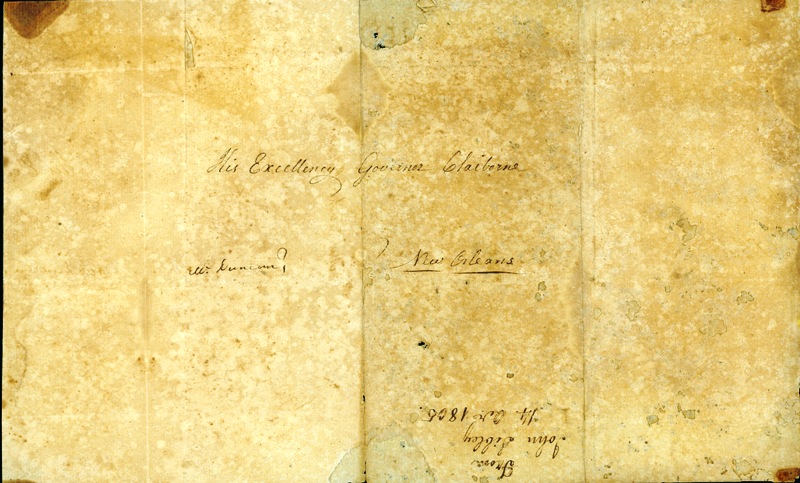 His Excellency Governor Claiborne
Mr. Duncan
New Orleans
From
John Sibley
14 1805